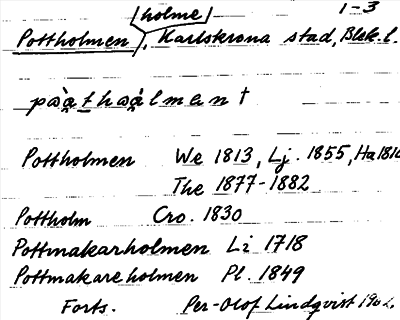 /holme/ 1-3
Pottholmen, Karlskrona stad, Blek. l.
Pottholmen We 1813, Lj. 1855, Ha 1810
The 1877-1882
Pottholm Cro. 1830
Pottmakarholmen Li 1718
Pottmakareholmen Pl. 1849
Forts. Per-Olof Lindqvist